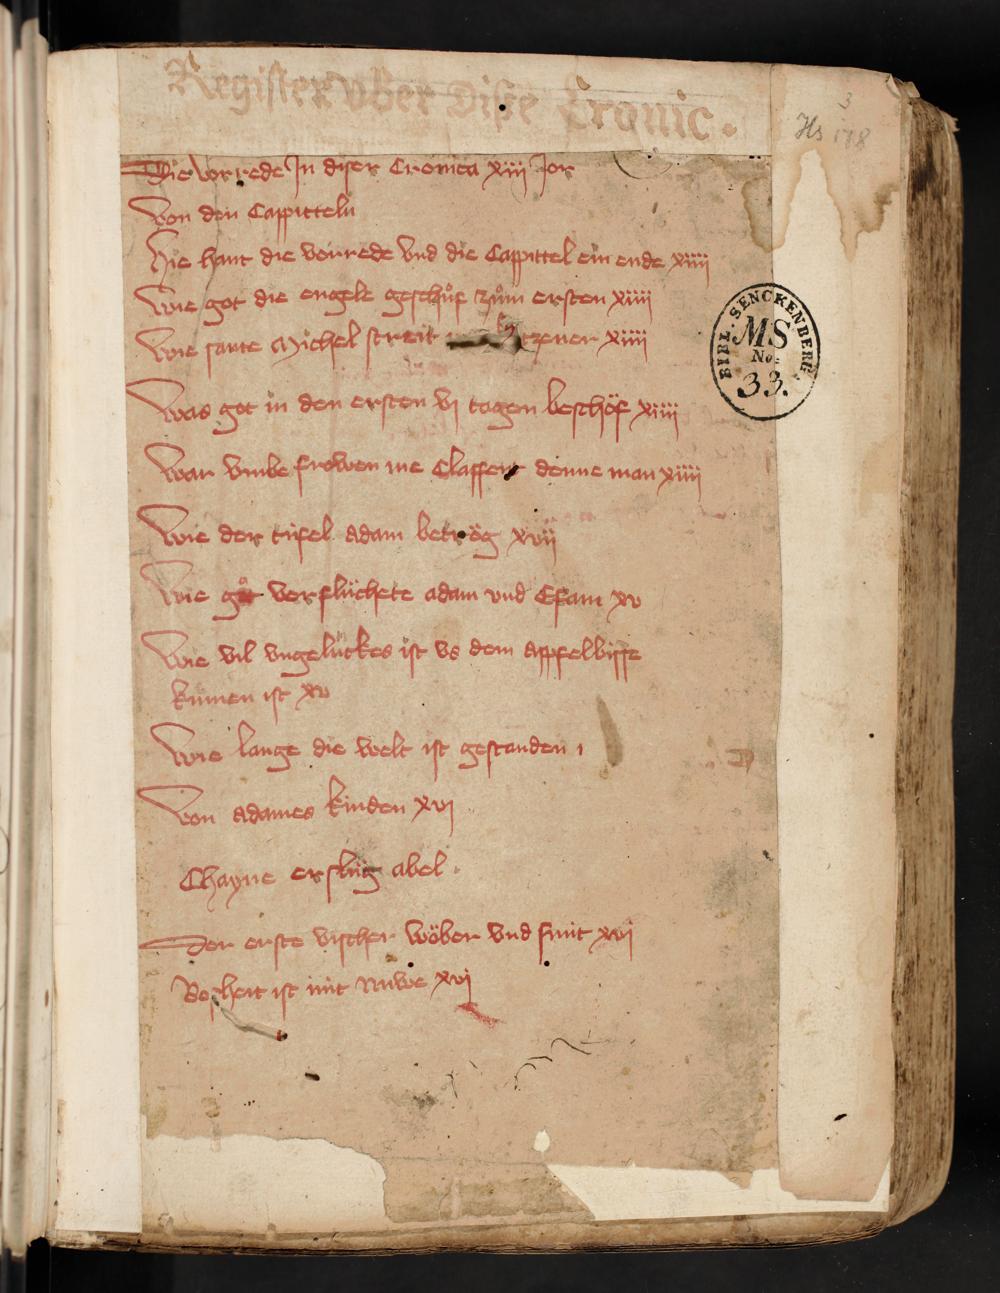 Register vber Diße Cronic.
3
Hs 178
Die vorrede In diser Cronica xiii Jor
Von den Cappitteln
Hie hant die vorrede vnd die Cappittel ein ende xiiii
Wie got die engele geschůf zům ersten xiiii
Wie sante Michel streit xiiii
Was got in den ersten vj tagen beschöf xiiii
War vmbe frowen me Claffent denne man xiiii
Wie der tüfel adam betrög xvii
Wie got verflüchete adam vnd Efam xv
Wie vil vngelückes ist vs dem appfelbisse
kumen ist xv
Wie lange die welt ist gestanden 1
Von adames kinden xvj
Chayne erslüg abel.
Der erste vischer wöber vnd smit xvj
Bosheit ist nüt nuwe xvj
BIBL. SENCKENBERG.
MS
No.
33.